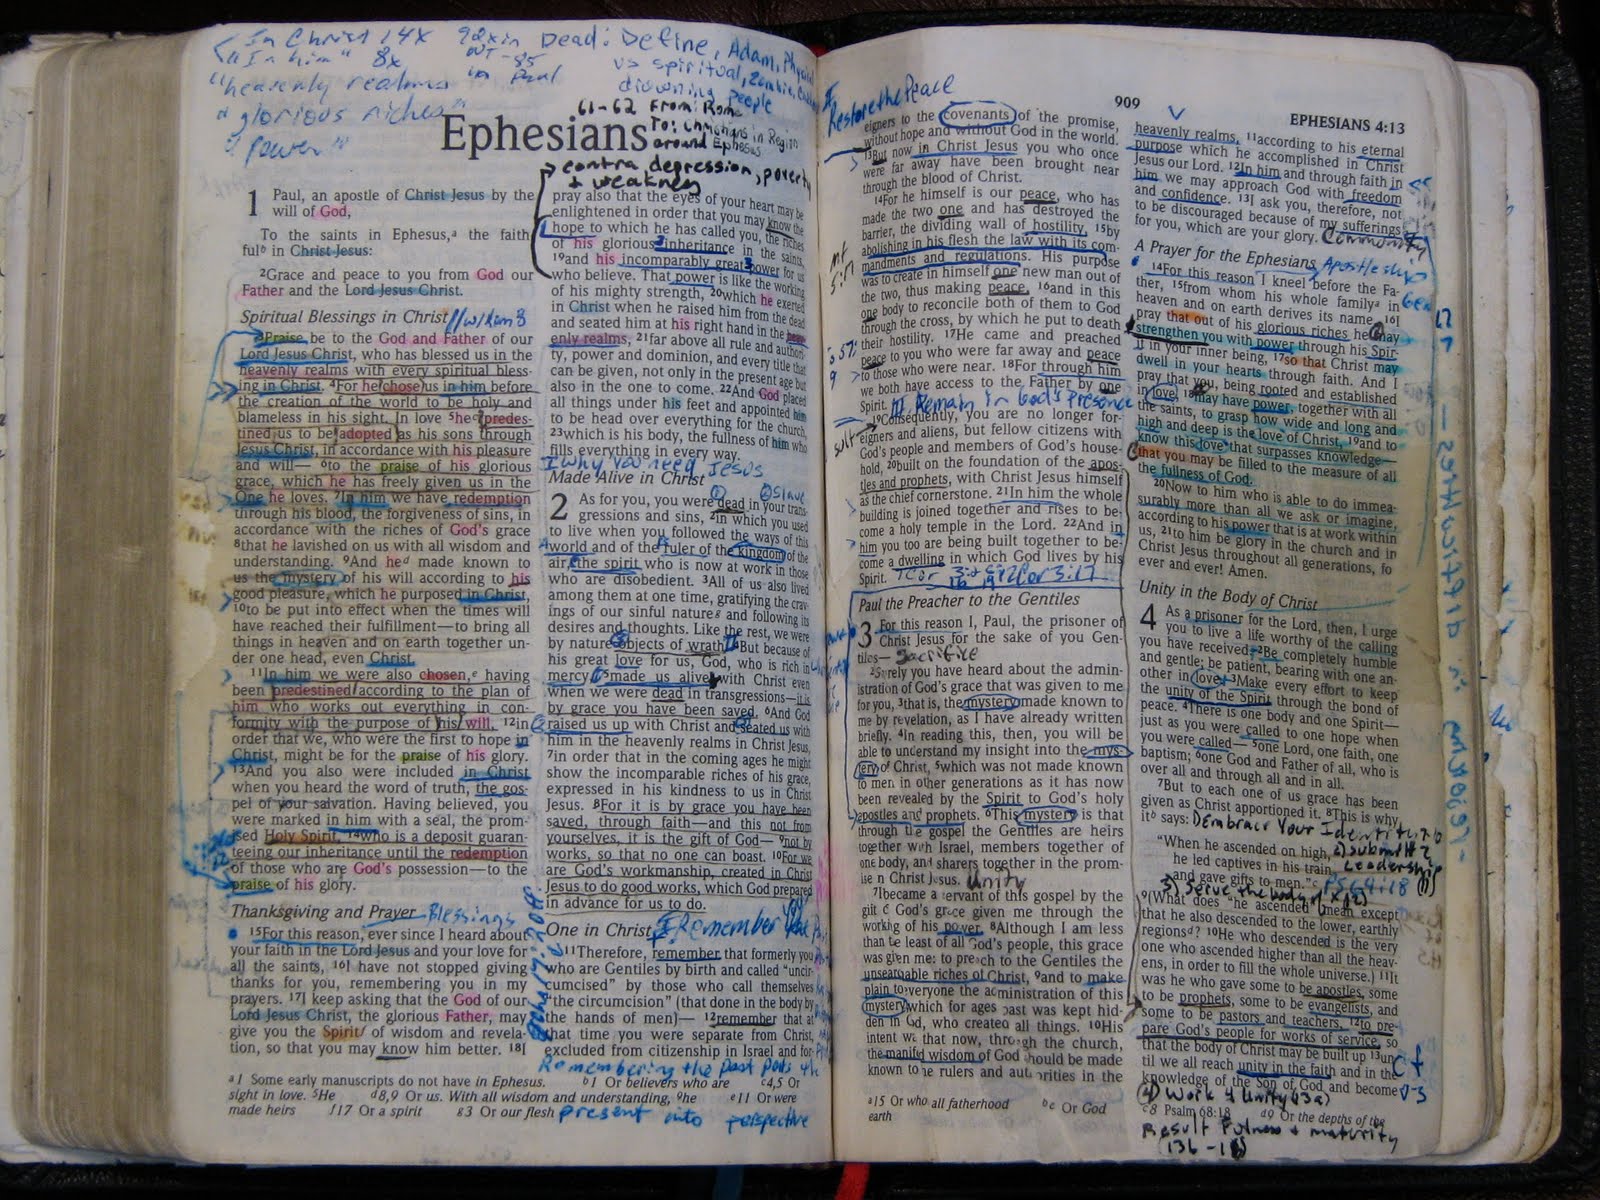 In Christ 14x 92x in
"In him" 8x
"heavenly realms
glorious riches"
"power"
Dead: Define, Adam, Physical
vs spiritual, zombie,
drowning people
61-62 From: Rome
To: Christians in Region
around Ephesus
contra depression, poverty
+ weakness
Ephesians
1 Paul, an apostle of Christ Jesus by the
will of God,
To the saints in Ephesus,a the faith
fulb in Christ Jesus:
2Grace and peace to you from God our
Father and the Lord Jesus Christ.
Spiritual Blessings in Christ
3Praise be to the God and Father of our
Lord Jesus Christ, who has blessed us in the
heavenly realms with every spiritual bless-
ing in Christ. 4For he chose us in him before
the creation of the world to be holy and
blameless in his sight. In love 5hec predes-
tined us to be adopted as his sons through
Jesus Christ, in accordance with his pleasure
and will— 6to the praise of his glorious
grace, which he has freely given us in the
One he loves. 7In him we have redemption
through his blood, the forgiveness of sins, in
accordance with the riches of God's grace
8that he lavished on us with all wisdom and
understanding. 9And hed made known to
us the mystery of his will according to his
good pleasure, which he purposed in Christ,
10to be put into effect when the times will
have reached their fulfillment—to bring all
things in heaven and on earth together un-
der one head, even Christ.
11In him we were also chosen,e having
been predestined according to the plan of
him who works out everything in con-
formity with the purpose of his will, 12in
order that we, who were the first to hope in
Christ, might be for the praise of his glory.
13And you also were included in Christ
when you heard the word of truth, the gos-
pel of your salvation. Having believed, you
were marked in him with a seal, the prom-
ised Holy Spirit, 14who is a deposit guaran-
teeing our inheritance until the redemption
of those who are God's possession—to the
praise of his glory.
Thanksgiving and Prayer - Blessings
15For this reason, ever since I heard about
your faith in the Lord Jesus and your love for
all the saints, 16I have not stopped giving
thanks for you, remembering you in my
prayers. 17I keep asking that the God of our
Lord Jesus Christ, the glorious Father, may
give you the Spiritf of wisdom and revela-
tion, so that you may know him better. 18I
pray also that the eyes of your heart may be
enlightened in order that you may know the
hope to which he has called you, the riches
of his glorious inheritance in the saints,
19and his incomparably great power for us
who believe. That power is like the working
of his mighty strength, 20which he exerted
in Christ when he raised him from the dead
and seated him at his right hand in the heav-
enly realms, 21far above all rule and authori-
ty, power and dominion, and every title that
can be given, not only in the present age but
also in the one to come. 22And God placed
all things under his feet and appointed him
to be head over everything for the church,
23which is his body, the fullness of him who
fills everything in every way.
I Why you need Jesus
Made Alive in Christ
① ② Slave
2 As for you, you were dead in your trans-
gressions and sins, 2in which you used
to live when you followed the ways of this
world and of the ruler of the kingdom of the
air, the spirit who is now at work in those
who are disobedient. 3All of us also lived
among them at one time, gratifying the crav-
ings of our sinful natureg and following its
desires and thoughts. Like the rest, we were
by nature objects of wrath. 4But because of
his great love for us, God, who is rich in
mercy, 5made us alive with Christ even
when we were dead in transgressions—it is
by grace you have been saved. 6And God
raised us up with Christ and seated us with
him in the heavenly realms in Christ Jesus,
7in order that in the coming ages he might
show the incomparable riches of his grace,
expressed in his kindness to us in Christ
Jesus. 8For it is by grace you have been
saved, through faith—and this not from
yourselves, it is the gift of God— 9not by
works, so that no one can boast. 10For we
are God's workmanship, created in Christ
Jesus to do good works, which God prepared
in advance for us to do.
One in Christ I Remember
11Therefore, remember that formerly you
who are Gentiles by birth and called "uncir-
cumcised" by those who call themselves
"the circumcision" (that done in the body by
the hands of men)— 12remember that at
that time you were separate from Christ,
excluded from citizenship in Israel and for-
Remembering the past puts the
present into perspective
a1 Some early manuscripts do not have in Ephesus. b1 Or believers who are c4,5 Or
sight in love. 5He d8,9 Or us. With all wisdom and understanding, 9he e11 Or were
made heirs f17 Or a spirit g3 Or our flesh
909
EPHESIANS 4:13
II
Restore the Peace
eigners to the covenants of the promise,
without hope and without God in the world.
13But now in Christ Jesus you who once
were far away have been brought near
through the blood of Christ.
14For he himself is our peace, who has
made the two one and has destroyed the
barrier, the dividing wall of hostility, 15by
abolishing in his flesh the law with its com-
mandments and regulations. His purpose
was to create in himself one new man out of
the two, thus making peace, 16and in this
one body to reconcile both of them to God
through the cross, by which he put to death
their hostility. 17He came and preached
peace to you who were far away and peace
to those who were near. 18For through him
we both have access to the Father by one
Spirit. III Remain in God's Presence
19Consequently, you are no longer for-
eigners and aliens, but fellow citizens with
God's people and members of God's house-
hold, 20built on the foundation of the apos-
tles and prophets, with Christ Jesus himself
as the chief cornerstone. 21In him the whole
building is joined together and rises to be-
come a holy temple in the Lord. 22And in
him you too are being built together to be-
come a dwelling in which God lives by his
Spirit.
Paul the Preacher to the Gentiles
3 For this reason I, Paul, the prisoner of
Christ Jesus for the sake of you Gen-
tiles— Sacrifice
2Surely you have heard about the admin-
istration of God's grace that was given to me
for you, 3that is, the mystery made known to
me by revelation, as I have already written
briefly. 4In reading this, then, you will be
able to understand my insight into the mys-
tery of Christ, 5which was not made known
to men in other generations as it has now
been revealed by the Spirit to God's holy
apostles and prophets. 6This mystery is that
through the gospel the Gentiles are heirs
together with Israel, members together of
one body, and sharers together in the prom-
ise in Christ Jesus. Unity
7I became a servant of this gospel by the
gift of God's grace given me through the
working of his power. 8Although I am less
than the least of all God's people, this grace
was given me: to preach to the Gentiles the
unsearchable riches of Christ, 9and to make
plain to everyone the administration of this
mystery, which for ages past was kept hid-
den in God, who created all things. 10His
intent was that now, through the church,
the manifold wisdom of God should be made
known to the rulers and authorities in the
a15 Or who all fatherhood
earth
heavenly realms, 11according to his eternal
purpose which he accomplished in Christ
Jesus our Lord. 12In him and through faith in
him we may approach God with freedom
and confidence. 13I ask you, therefore, not
to be discouraged because of my sufferings
for you, which are your glory. Community
A Prayer for the Ephesians Apostleship
14For this reason I kneel before the Fa-
ther, 15from whom his whole familya in
heaven and on earth derives its name. 16I
pray that out of his glorious riches he may
strengthen you with power through his Spir-
it in your inner being, 17so that Christ may
dwell in your hearts through faith. And I
pray that you, being rooted and established
in love, 18may have power, together with all
the saints, to grasp how wide and long and
high and deep is the love of Christ, 19and to
know this love that surpasses knowledge—
that you may be filled to the measure of all
the fullness of God.
20Now to him who is able to do immea-
surably more than all we ask or imagine,
according to his power that is at work within
us, 21to him be glory in the church and in
Christ Jesus throughout all generations, for
ever and ever! Amen.
Unity in the Body of Christ
4 As a prisoner for the Lord, then, I urge
you to live a life worthy of the calling
you have received. 2Be completely humble
and gentle; be patient, bearing with one an-
other in love. 3Make every effort to keep
the unity of the Spirit through the bond of
peace. 4There is one body and one Spirit—
just as you were called to one hope when
you were called— 5one Lord, one faith, one
baptism; 6one God and Father of all, who is
over all and through all and in all.
7But to each one of us grace has been
given as Christ apportioned it. 8This is why
itb says: 1) Embrace Your Identity
"When he ascended on high, 2) submit
he led captives in his train Leadership
and gave gifts to men."c PS 64:18
3) Serve the body of
9(What does "he ascended" mean except
that he also descended to the lower, earthly
regionsd? 10He who descended is the very
one who ascended higher than all the heav-
ens, in order to fill the whole universe.) 11It
was he who gave some to be apostles, some
to be prophets, some to be evangelists, and
some to be pastors and teachers, 12to pre-
pare God's people for works of service, so
that the body of Christ may be built up 13un-
til we all reach unity in the faith and in the
knowledge of the Son of God and become
4) Work 4 Unity (13a)
c8 Psalm 68:18 d9 Or the depths of the
Result Fulness + maturity